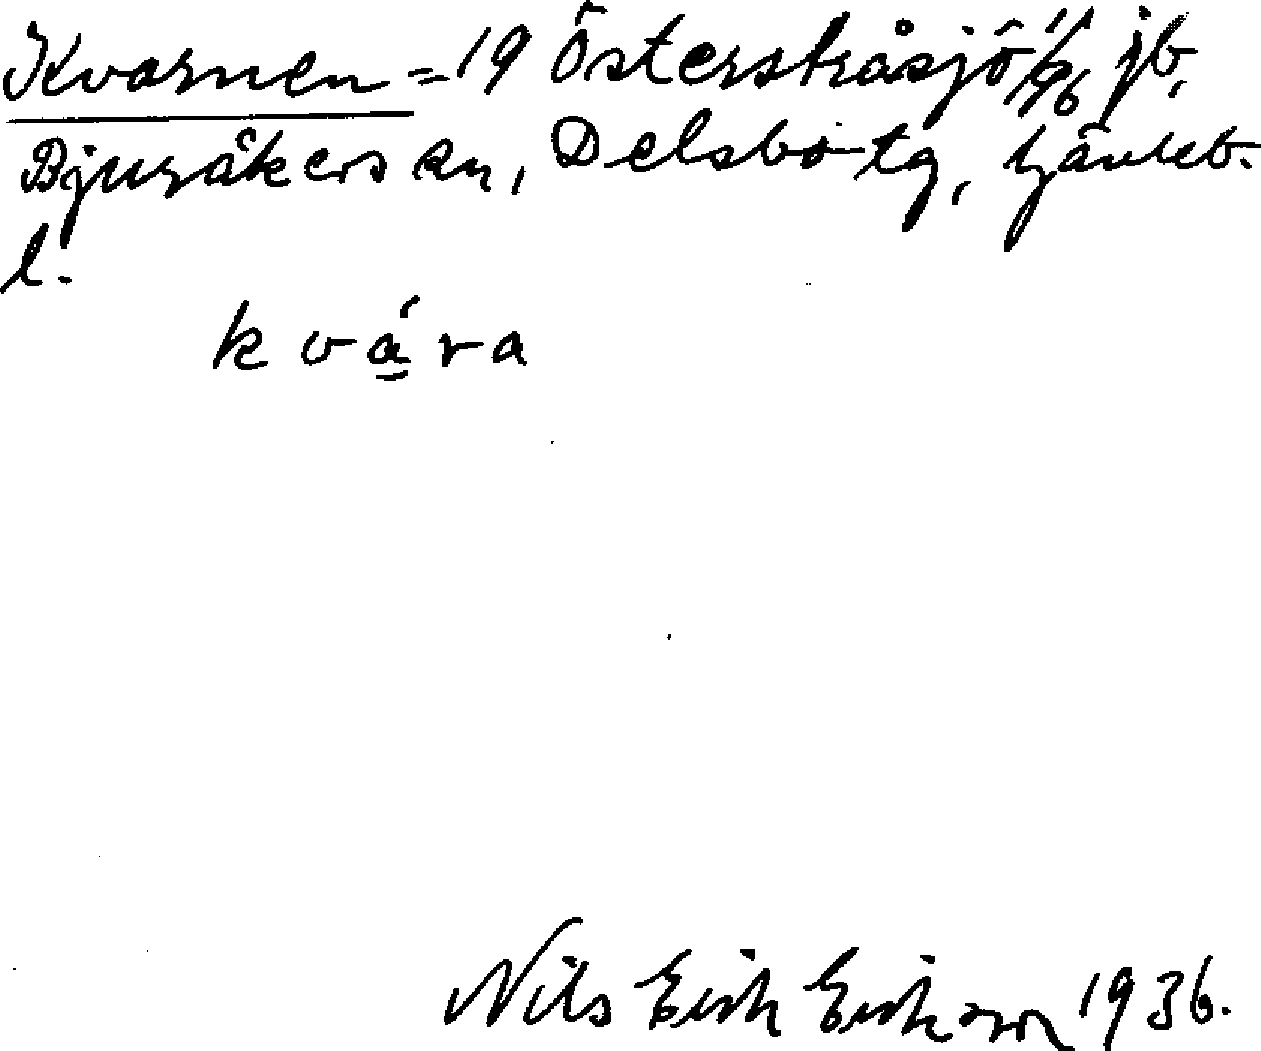 Kvarnen = 19 Österstråsjö 11/96 jb,
Bjuråkers sn, Delsbo tg, Gävleb.
l.
kvára
Nils Erik Erikson 1936.